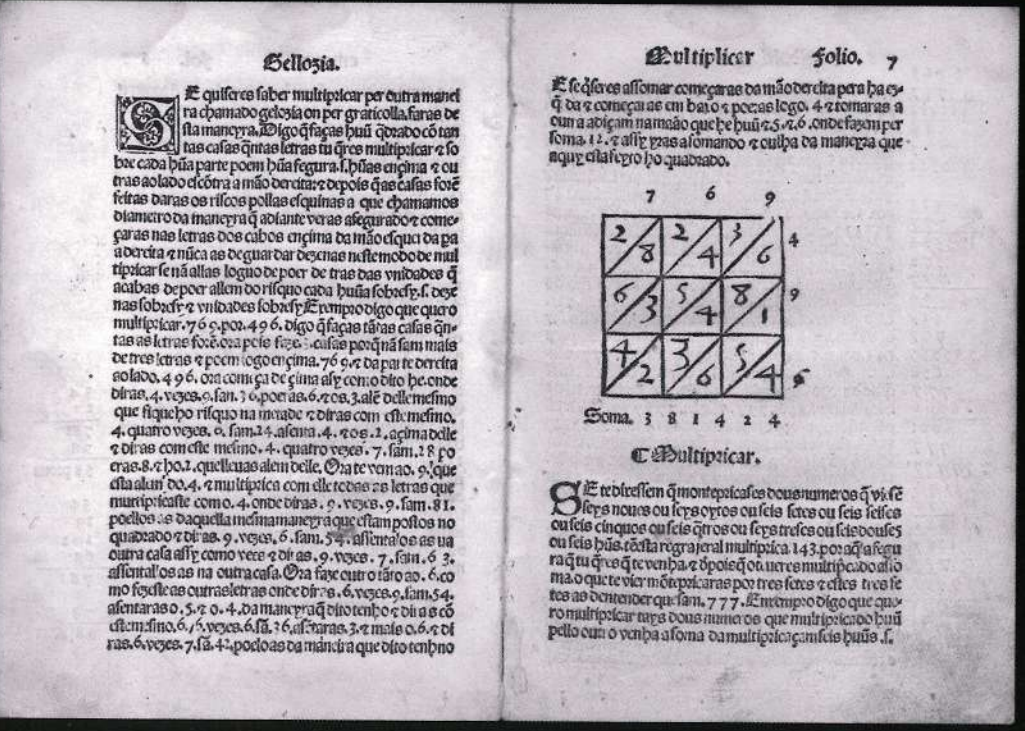 Gellozia.
SE quiseres saber multipricar per outra manei
ra chamado gelozia ou per graticolla. faras de
sta maneyra. Digo q̃ faças huũ q̃drado cõ tan
tas casas q̃ntas letras tu q̃res multipricar ⁊ so
bre cada hũa parte poem hũa fegura. s. hũas ençima ⁊ ou
tras ao lado escõtra a mão dereita: ⁊ depois q̃ as casas forẽ
feitas daras os riscos pollas esquinas a que chamamos
diametro da maneyra q̃ adiante veras afegurado ⁊ come-
çaras nas letras dos cabos ençima da mão da pa
a dereita ⁊ nũca as de guardar dezenas neste modo de mul
tipricar se nã allas loguo de poer de tras das vnidades q̃
acabas de poer allem do risquo cada hũa sobre sy. s. deze
nas sobre sy ⁊ vnidades sobre sy Exempro digo que quero
multipricar. 769. por. 496. digo q̃ faças tãtas casas q̃n-
tas as letras forẽ. ora pois faze. casas porq̃ nã sam mais
de tres letras ⁊ poem logo ençima. 769. ⁊ da parte dereita
ao lado. 496. ora começa de çima assy como dito he. onde
diras. 4. vezes. 9. san. 36. poeras. 6. ⁊ os. 3. alẽ delle mesmo
que fique ho risquo na metade ⁊ diras com este mesmo.
4. quatro vezes. 6. sam. 24. asenta. 4. ⁊ os. 2. açima delle
⁊ diras com este mesmo. 4. quatro vezes. 7. sam. 28 po
eras. 8. ⁊ ho. 2. que lleuas alem delle. Ora te vem ao. 9. que
esta do. 4. ⁊ multiprica com elle todas as letras que
multipricaste com o. 4. onde diras. 9. vezes. 9. sam. 81.
poellos as daquella mesma maneyra que estam postos no
quadrado ⁊ diras. 9. vezes. 6. sam. 54. assental'os as na
outra casa assy como vees ⁊ diras. 9. vezes. 7. sam. 63.
assental'os as na outra casa. Ora faze outro tãto ao. 6. co
mo fezeste as outras letras onde diras. 6. vezes. 9. sam. 54.
asentaras o. 5. ⁊ o. 4. da maneyra q̃ dito tenho ⁊ diras cõ
este mesmo. 6. vezes. 6. sã. 36. asẽtaras. 3. ⁊ mais o. 6. ⁊ di
ras. 6. vezes. 7. sã. 42. poelo as da maneira que dito tenho
Multiplicar Folio. 7
E se q̃seres assomar começaras da mão dereita pera ha
q̃ da ⁊ começaras em baixo ⁊ poeras logo. 4 ⁊ tomaras a
outra adiçam na mão que he huũ ⁊ 5. ⁊ 6. onde fazem per
soma. 12. ⁊ assy yras asomando ⁊ oulha da maneyra que
aquy esta feyto ho quadrado.
7 6 9
2 8 2 4 3 6 4
6 3 5 4 8 1 9
4 2 3 6 5 4 6
Soma. 3 8 1 4 2 4
¶ Multipricar.
SE te dissessem q̃ montepricases dous numeros q̃ viesẽ
seys noues ou seys oytos ou seis setes ou seis seises
ou seis cinquos ou seis q̃tros ou seys treses ou seis douses
ou seis hũs. tẽ esta regra jeral multiprica. 143. por aq̃ a fegu
ra q̃ tu q̃res q̃ te venha. ⁊ dpois q̃ ot. ueres multipricado asso
ma. o que te vier mõtepricaras por tres setes ⁊ estes tres se
tes as dentender que sam. 777. Enxempro digo que que-
ro multipricar tays dous numeros que multipricado huũ
pello outro venha a soma da multipricaçam seis huũs. s.